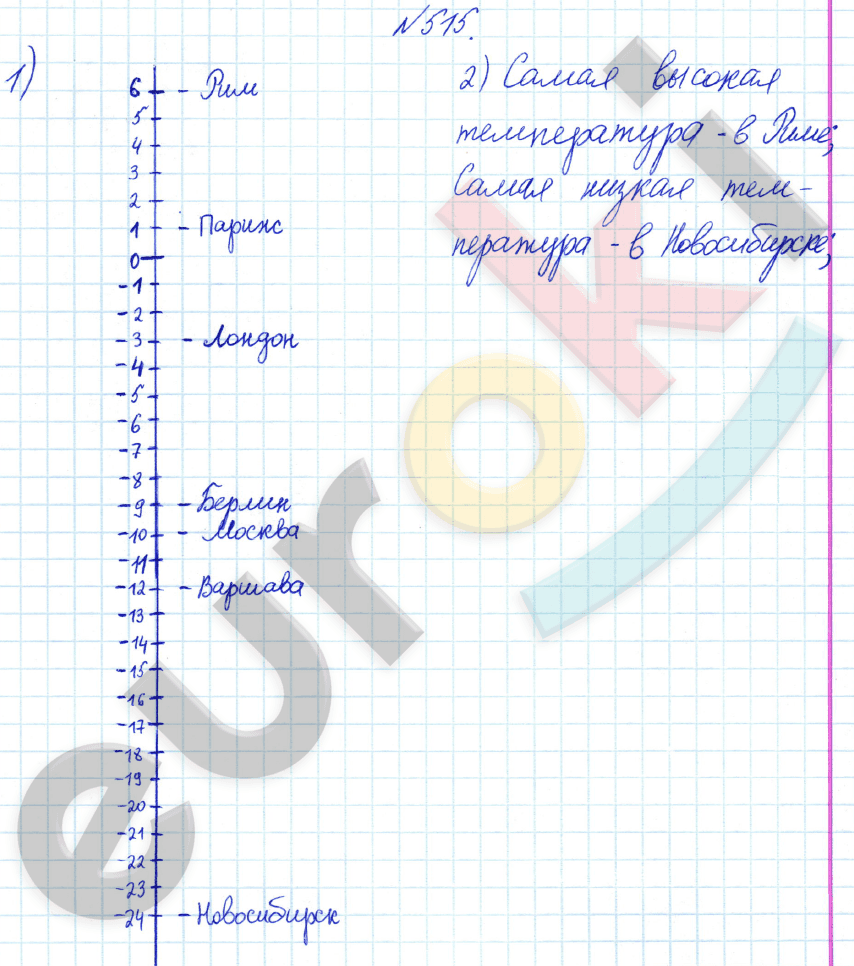 №515.
1)
6 - Рим
5
4
3
2
1 - Париж
0
-1
-2
-3 - Лондон
-4
-5
-6
-7
-8
-9 - Берлин
-10 - Москва
-11
-12 - Варшава
-13
-14
-15
-16
-17
-18
-19
-20
-21
-22
-23
-24 - Новосибирск
2) Самая высокая
температура - в Риме;
Самая низкая тем-
пература - в Новосибирске;
euroki